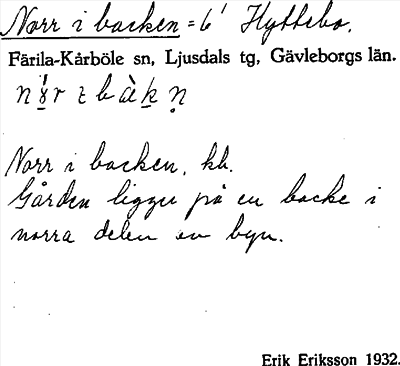 Norr i backen = 6¹ Hyttebo.
Färila-Kårböle sn, Ljusdals tg, Gävleborgs län.
Norr i backen, kh.
Gården ligger på en backe i
norra delen av byn.
Erik Eriksson 1932.